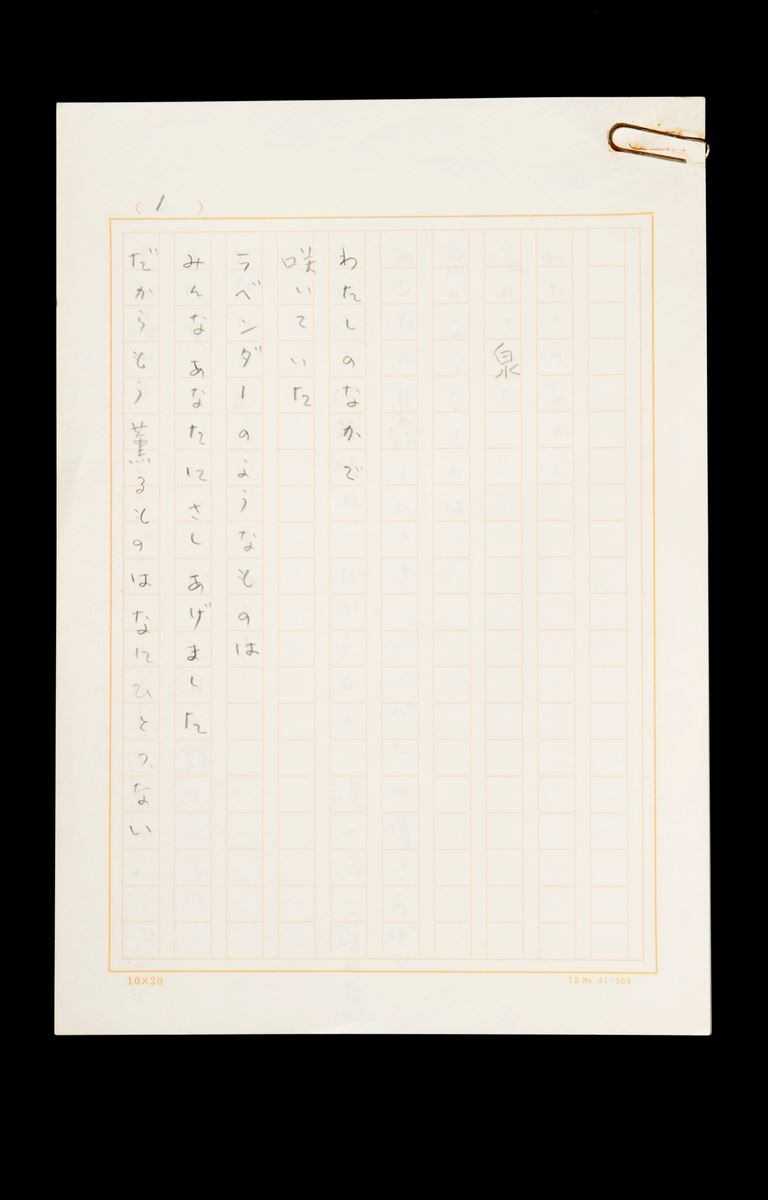 ( 1 )
泉
わたしのなかで
咲いていた
ラベンダーのようなものは
みんなあなたにさしあげました
だからもう薫るものはなにひとつない
10×20
TS No 41-308